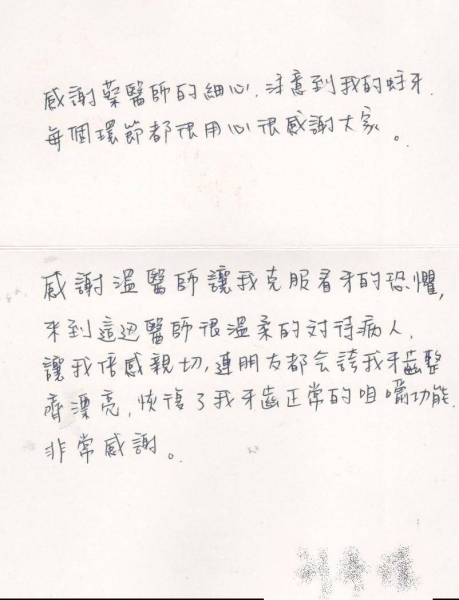 感謝蔡醫師的細心,注意到我的蛀牙.
每個環節都很用心很感謝大家。
感謝溫醫師讓我克服看牙的恐懼,
來到這邊醫師很溫柔的对待病人.
讓我倍感親切,連朋友都会誇我牙齒整
齊漂亮,恢復了我牙齒正常的咀嚼功能.
非常感謝。